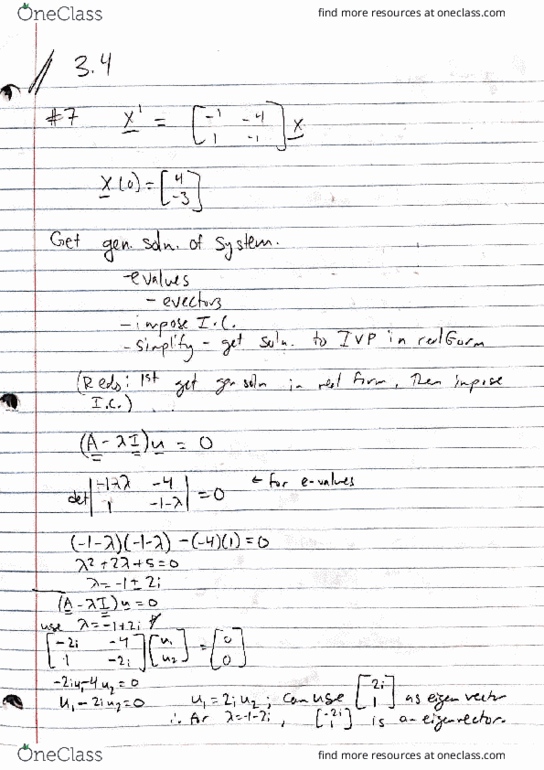 OneClass
find more resources at oneclass.com
3.4
#7 x' = [-1 -4
1 -1] x
x(0) = [4
-3]
Get gen. soln. of System.
-evalues
- evectors
- impose I.C.
- simplify - get soln. to IVP in real form
(Redo: 1st get gen soln in real form, then impose
I.C.)
(A - λI)u = 0
det |-1-λ -4
1 -1-λ| = 0 ← for e-values
(-1-λ)(-1-λ) - (-4)(1) = 0
λ² + 2λ + 5 = 0
λ = -1 ± 2i
(A - λI)u = 0
use λ = -1+2i
[-2i -4
1 -2i] [u₁
u₂] = [0
0]
-2iu₁-4u₂=0
u₁ - 2iu₂=0 u₁ = 2iu₂; can use [2i
1] as eigenvector
∴ for λ=-1-2i, [-2i
1] is an eigenvector.
OneClass
find more resources at oneclass.com